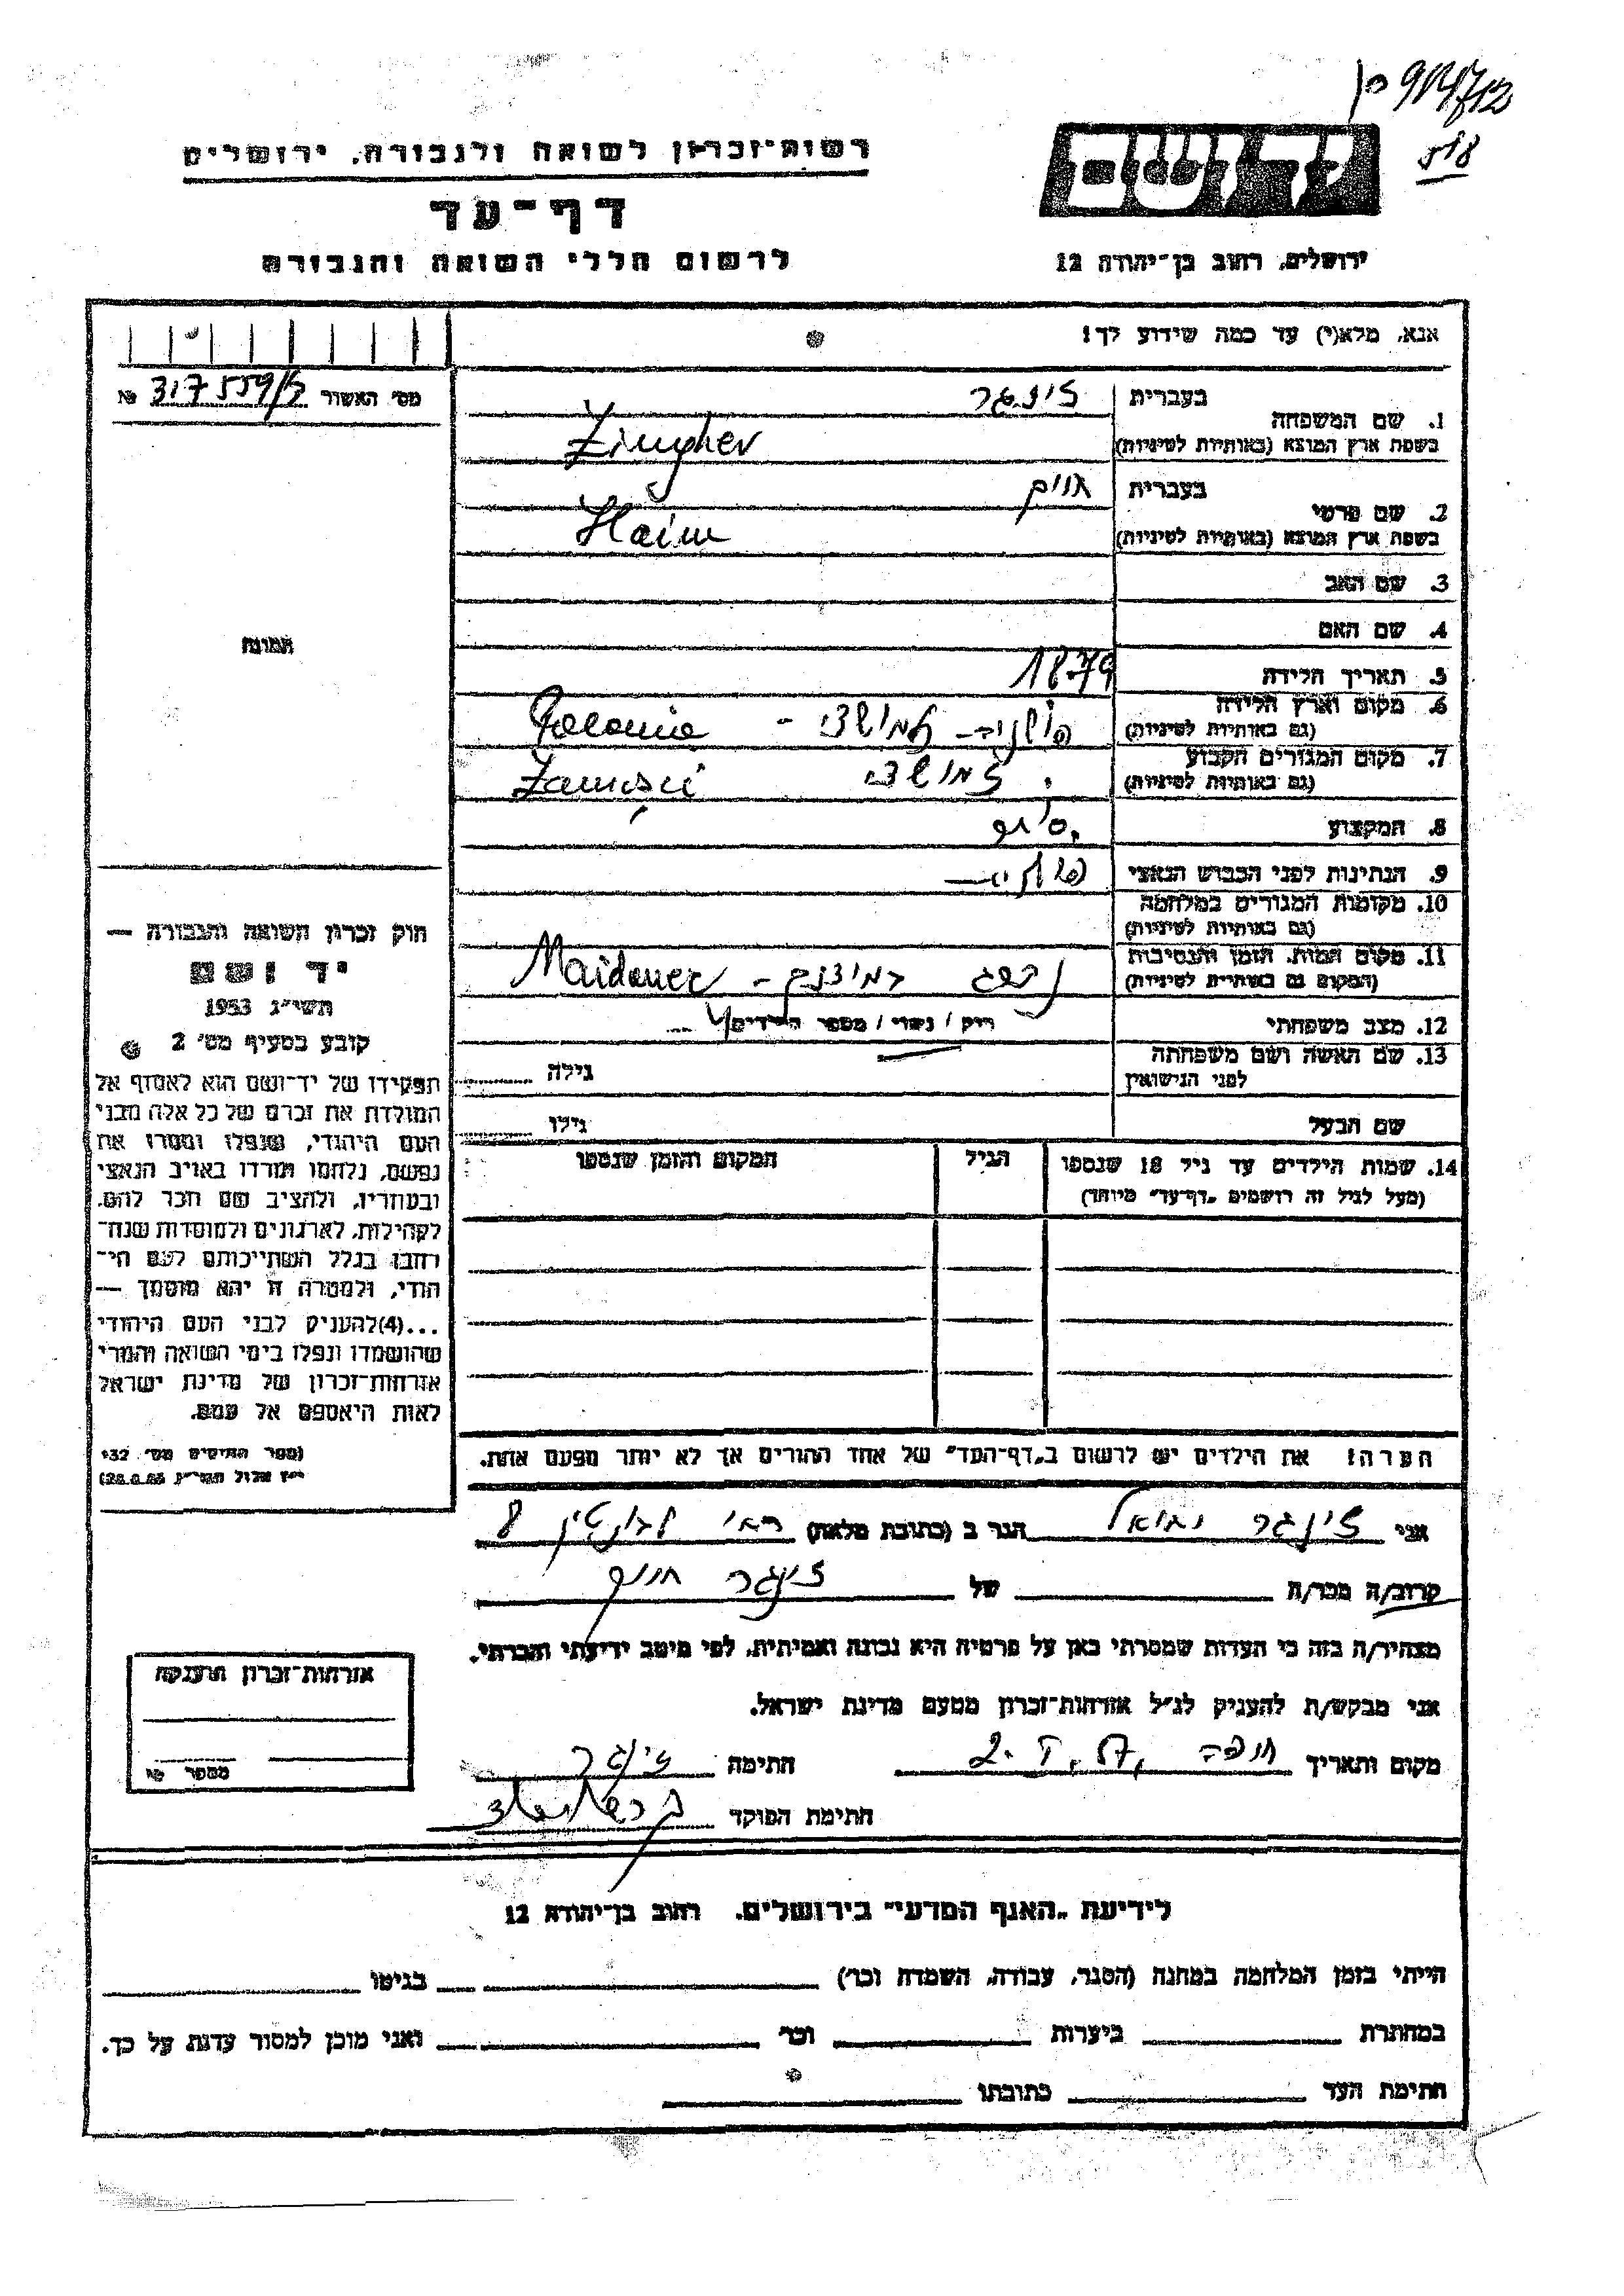 רשות-זכרון לשואה ולגבורה, ירושלים
דף-עד
לרשום חללי השואה והגבורה
יד ושם
518
ירושלים, רחוב בן-יהודה 12
אנא, מלא(י) עד כמה שידוע לך!
מס' האשור
№ 317559/
1. שם המשפחה
בעברית זינגר
בשפת ארץ המוצא (באותיות לטיניות) Zingher
2. שם פרטי
בעברית חיים
בשפת ארץ המוצא (באותיות לטיניות) Haim
3. שם האב
4. שם האם
5. תאריך הלידה 1879
6. מקום וארץ הלידה
(גם באותיות לטיניות) פולניה - זמושץ - Polonia
7. מקום המגורים הקבוע
(גם באותיות לטיניות) זמושץ Zamości
8. המקצוע סוחר
9. הנתינות לפני הכבוש הנאצי
10. מקומות המגורים במלחמה
(גם באותיות לטיניות)
11. מקום המות, הזמן והנסיבות
(המקום גם באותיות לטיניות) נהרג במידנק - Maidanec
12. מצב משפחתי רוק / נשוי / מספר הילדים 4
13. שם האשה ושם משפחתה
לפני הנישואין גילה
שם הבעל גילו
14. שמות הילדים עד גיל 18 שנספו
(מעל לגיל זה רושמים "דף-עד" מיוחד)
הגיל
המקום והזמן שנספו
הערה! את הילדים יש לרשום ב"דף-העד" של אחד ההורים אך לא יותר מפעם אחת.
תמונה
חוק זכרון השואה והגבורה —
יד ושם
תשי"ג 1953
קובע בסעיף מס' 2
תפקידו של יד-ושם הוא לאסוף אל
המולדת את זכרם של כל אלה מבני
העם היהודי, שנפלו ומסרו את
נפשם, נלחמו ומרדו באויב הנאצי
ובעוזריו, ולהציב שם וזכר להם,
לקהילות, לארגונים ולמוסדות שנח-
רבו בגלל השתייכותם לעם הי-
הודי, ולמטרה זו יהא מוסמך —
...(4)להעניק לבני העם היהודי
שהושמדו ונפלו בימי השואה והמרי
אזרחות-זכרון של מדינת ישראל
לאות היאספם אל עמם.
(ספר החוקים מס' 132
י"ז אלול תשי"ג 28.8.53)
אני זינגר הגר ב (כתובת מלאה) 8
קרוב/ה מכר/ה של זינגר חיים
מצהיר/ה בזה כי העדות שמסרתי כאן על פרטיה היא נכונה ואמיתית, לפי מיטב ידיעתי והכרתי.
אני מבקש/ת להעניק לנ"ל אזרחות-זכרון מטעם מדינת ישראל.
מקום ותאריך חיפה חתימה זינגר
חתימת הפוקד
אזרחות-זכרון הוענקה
מספר №
לידיעת "האגף המדעי" בירושלים, רחוב בן-יהודה 12
הייתי בזמן המלחמה במחנה (הסגר, עבודה, השמדה וכו') בגיטו
במחתרת ביערות וכו' ואני מוכן למסור עדות על כך.
חתימת העד כתובתו